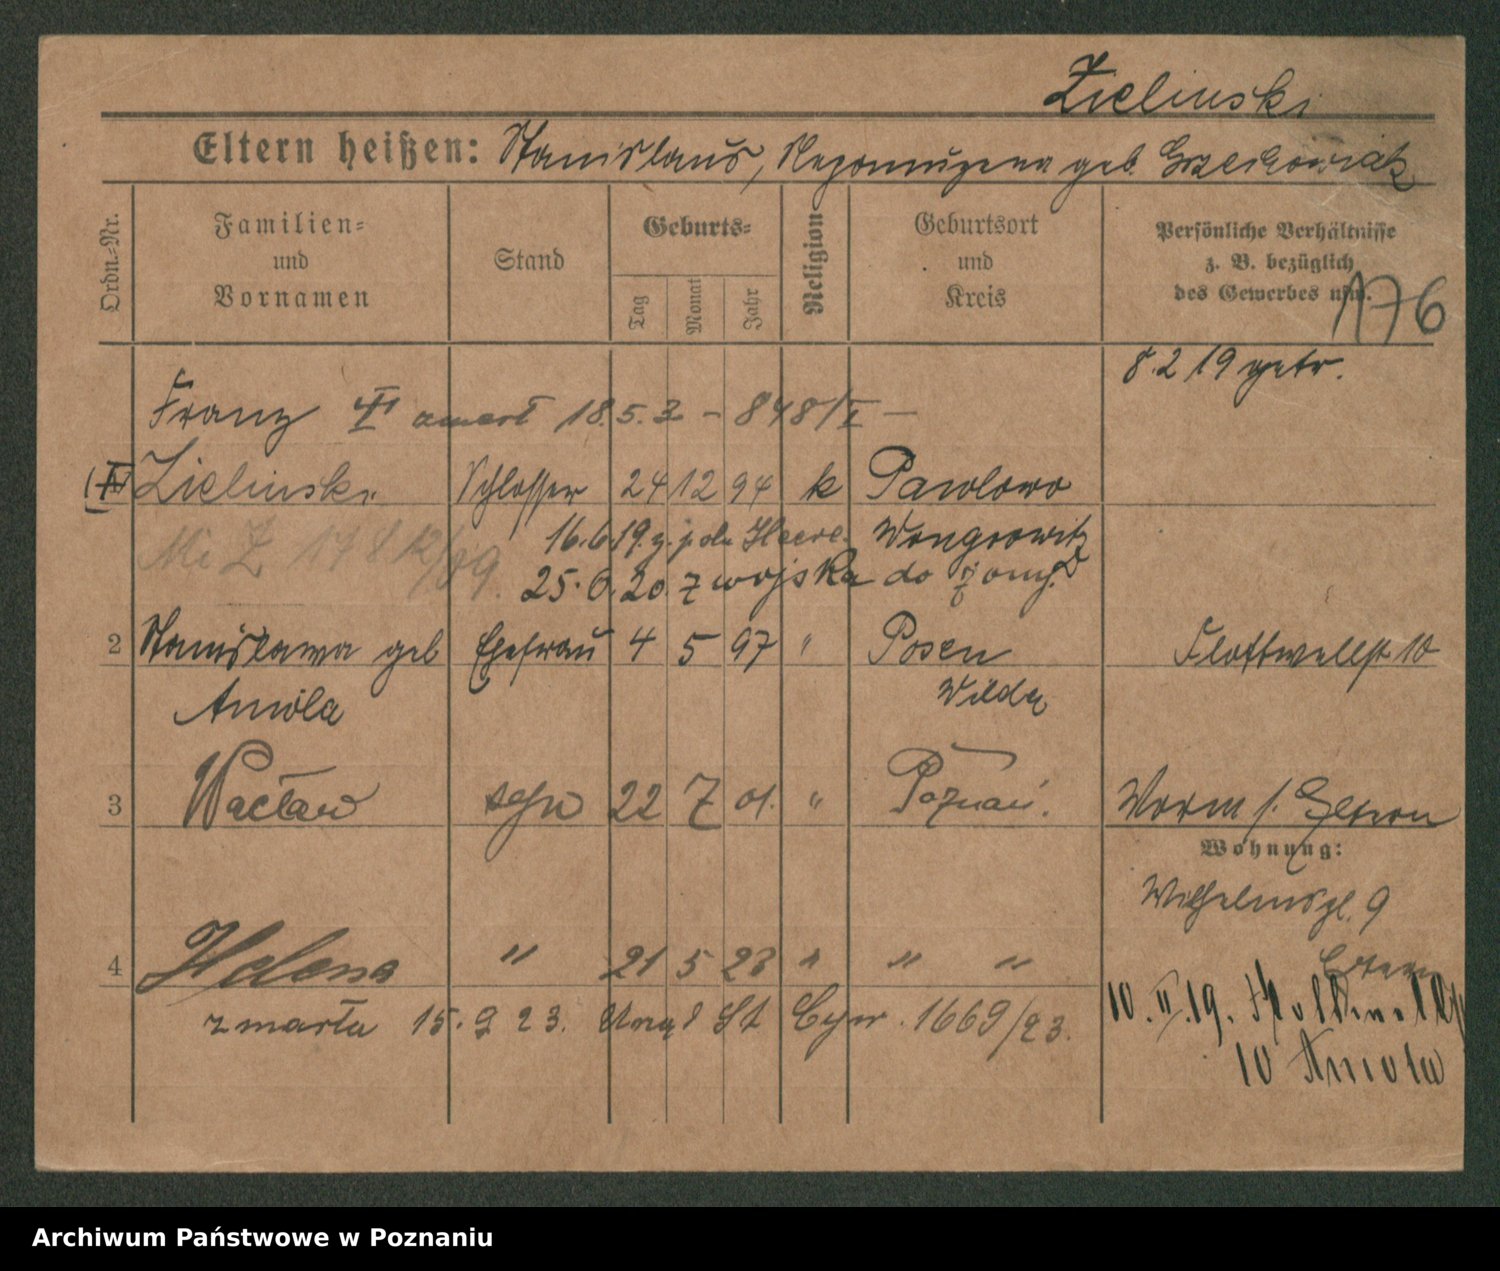 Zielinski
Eltern heißen: Stanislaus, Nepomuzena geb. Grzeskowiak
Ordn.-Nr.
Familien- und Vornamen
Stand
Geburts-
Tag
Monat
Jahr
Religion
Geburtsort und Kreis
Persönliche Verhältnisse z. B. bezüglich des Gewerbes usw.
176
8. 2 19 getr.
Franz 18.5.2 - 848/I -
Zielinski Schlosser 24 12 94 k Pawlowo
16.6.19. z. Wongrowitz
25.6.20. z wojska do
2 Stanislawa geb Ehefrau 4 5 97 " Posen Flottwellstr 10
Aniola Wilda
3 Wacław 22 7 01. " Poznań.
Wohnung:
Wilhelmspl. 9
4 Helena " 21 5 23 " " "
zmarła 15. 9 23. Urząd St Cyw. 1669/23.
10. II. 19.
10 Aniola
Archiwum Państwowe w Poznaniu